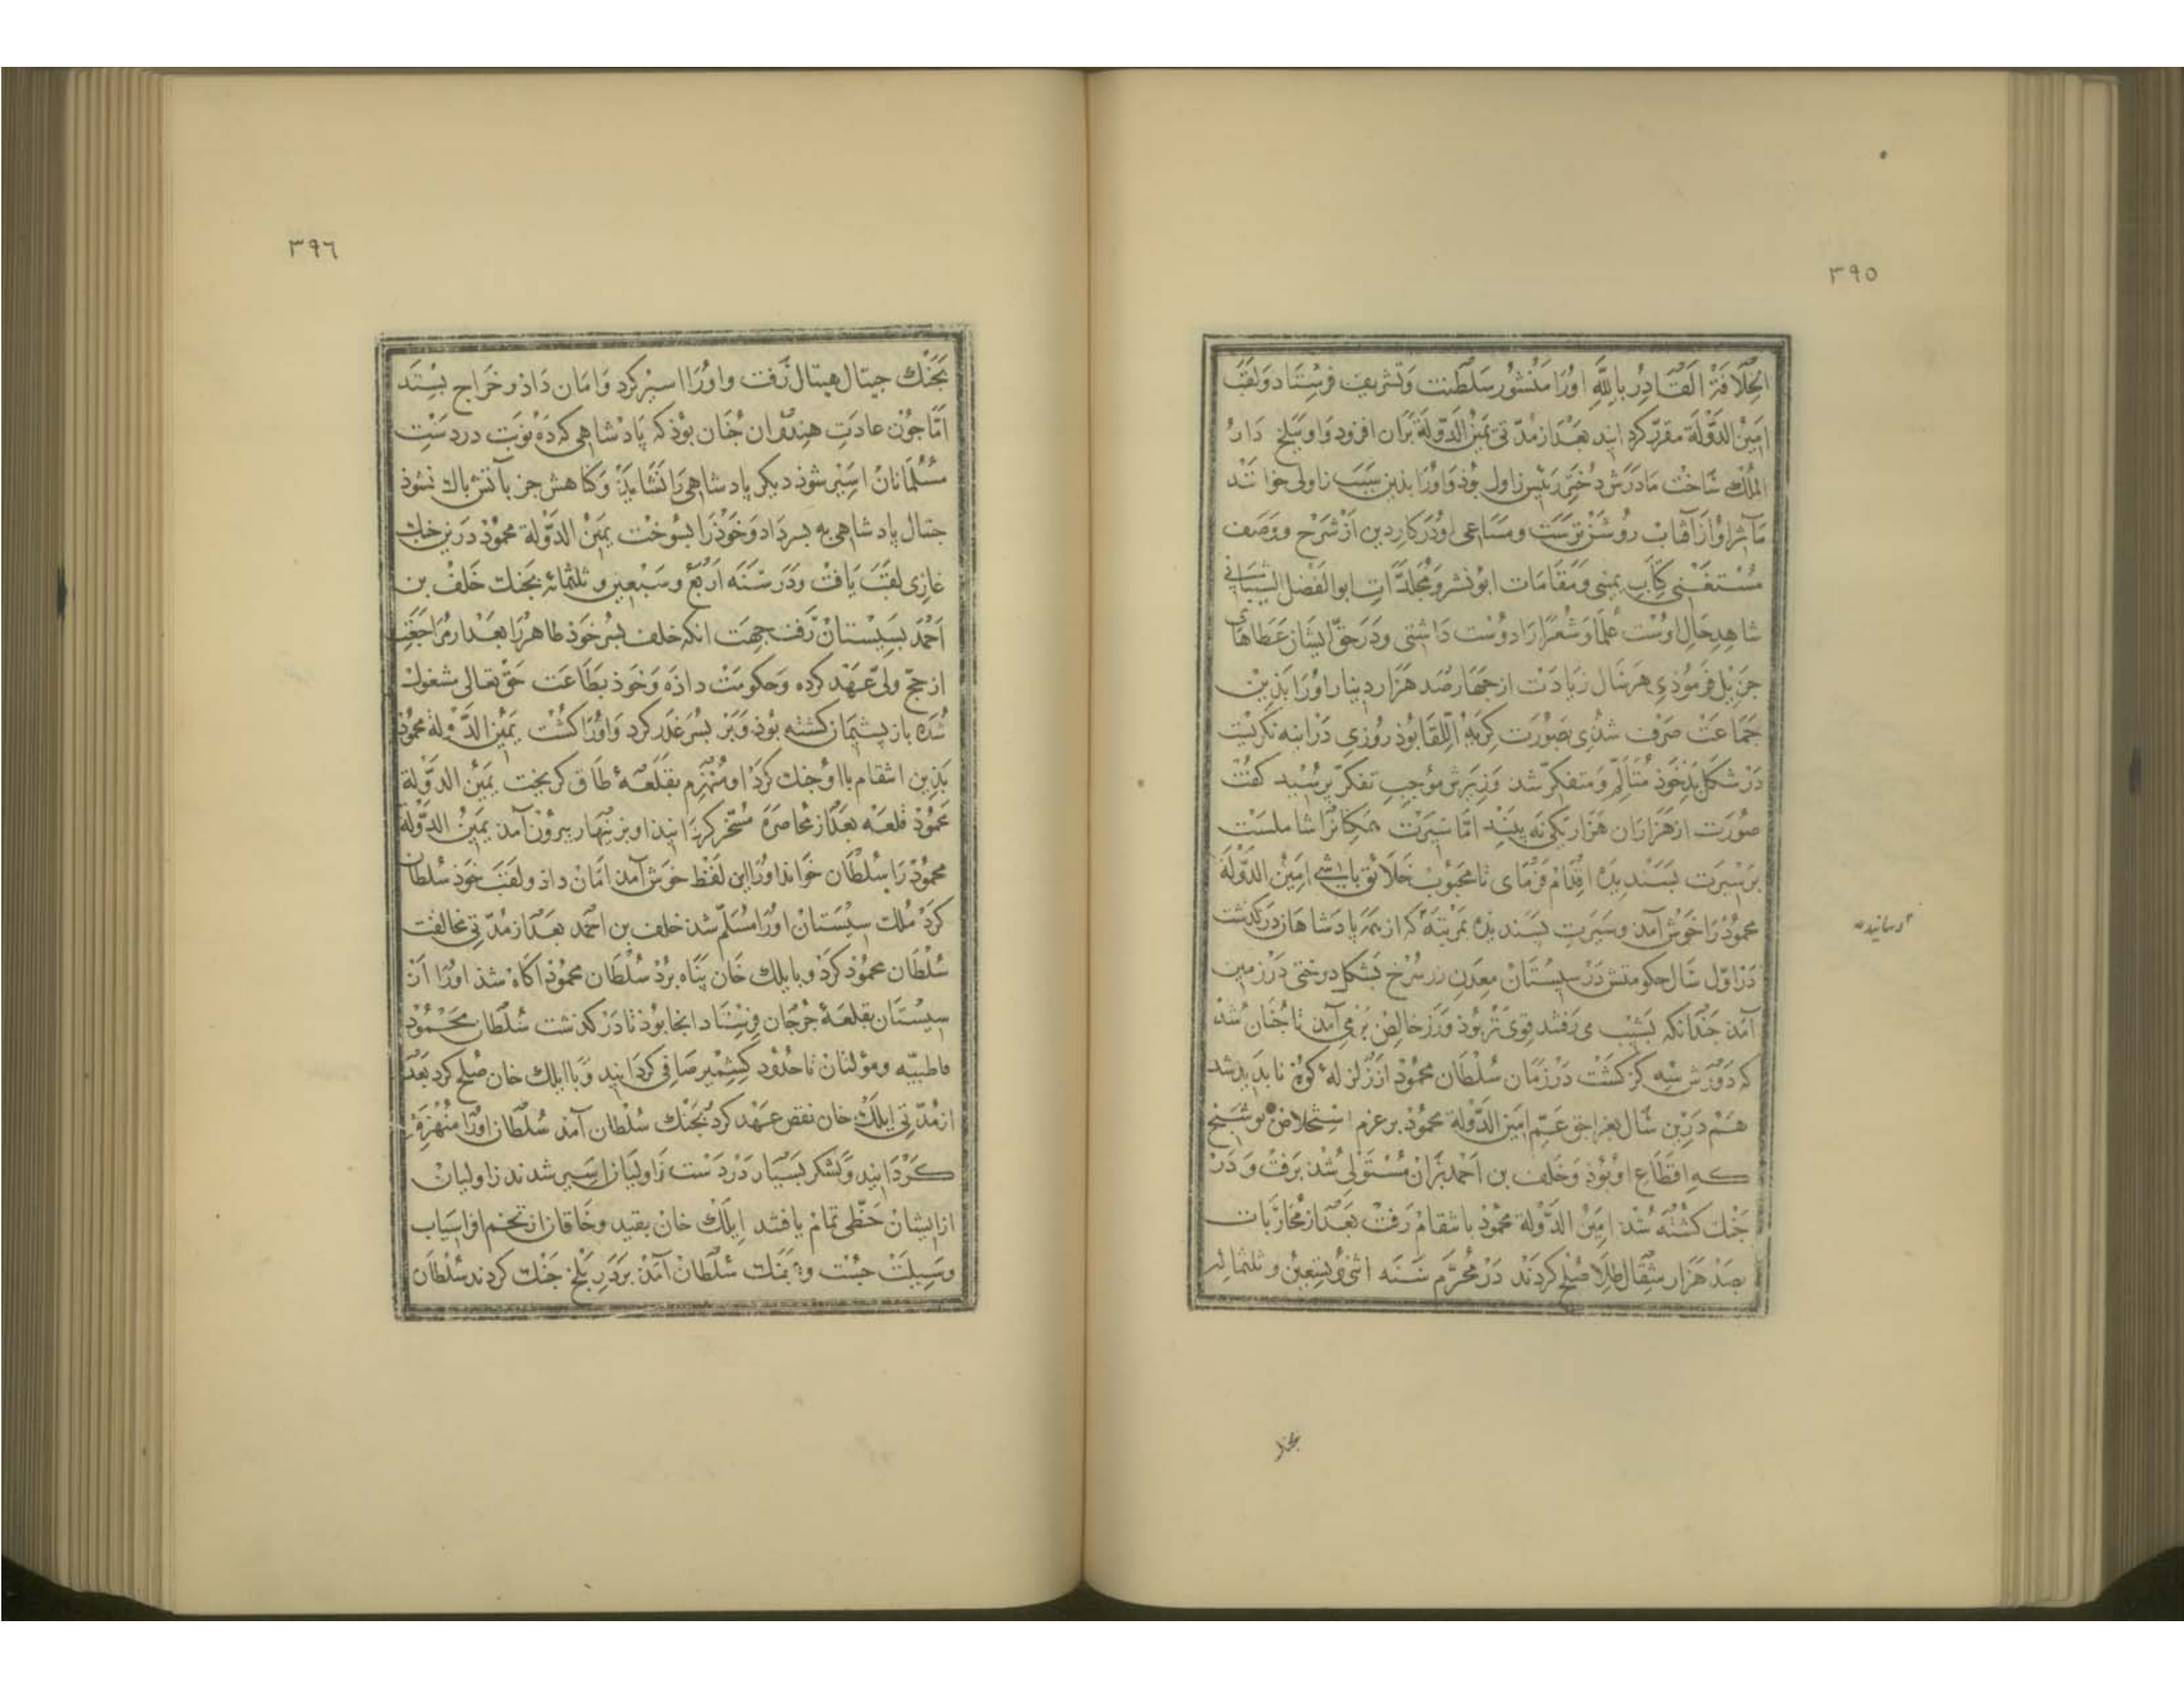 ٣٩٥
الخلافة القادر بالله اورا منشور سلطنت وتشریف فرستاد ولقب
امین الدولة مقرر کردانید بعد از مدتی یمین الدولة بران افزود واو بلخ دار
الملك ساخت مادرش دختر رئیس زاول بوذ واورا بدین سبب زاولی خواندند
مآثر او از آفتاب روشن ترست ومساعی او در کار دین از شرح ووصف
مستغنی کتاب یمینی ومقامات ابو نشر ومجلدات ابو الفضل الشیبانی
شاهد حال اوست علما وشعرا را دوست داشتی ودر حق ایشان عطاهای
جزیل فرموذی هر سال زیادت از چهار صد هزار دینار اورا بذین
جماعت صرف شدی بصورت کریه اللقا بوذ روزی در اینه نکریست
در شکل بذ خوذ متألم ومتفکر شد وزیرش موجب تفکر پرسید کفت
صورت از هزاران هزار یکی نه بیند اما سیرت همکانرا شاملست
بر سیرت بسندیده اقدام فرمای تا محبوب خلائق باشی امین الدولة
محموذ را خوش آمذ وسیرت پسندیذه بمرتبهٔ که از همه پادشاهان در کذشت
در اول سال حکومتش در سیستان معدن زر سرخ بشکل درختی در زمین
آمذ جندانکه بشیب می رفتند قوی تر بوذ وزر خالص بر می آمذ تا جنان شد
که دورش سه کز کشت در زمان سلطان محموذ از زلزله کوه نا بدید شد
هم درین سال بغراجق عم امین الدولة محموذ بر عزم استخلاص بوشنج
که اقطاع او بوذ وخلف بن احمد بران مستولی شذ برفت ودر
جنك کشته شذ امین الدولة محموذ بانتقام رفت بعد از محاربات
بصد هزار مثقال طلا صلح کردند در محرم سنه اثنی وتسعین وثلثمائه
٣٩٦
بجنك جیتال هیتال رفت واورا اسیر کرد وامان داذ وخراج بستد
اما جون عادت هندوان جنان بوذ که پادشاهی که ده نوبت در دست
مسلمانان اسیر شوذ دیکر پادشاهی را نشاید وکناهش جز بآتش باك نشوذ
جتال پادشاهی به بسر داد وخوذ را بسوخت یمین الدولة محموذ درین جنك
غازی لقب یافت ودر سنه اربع وسبعین وثلثمائه بجنك خلف بن
احمد بسیستان رفت جهت انکه خلف بسر خوذ طاهر را بعد از مراجعت
از حج ولی عهد کرده وحکومت داذه وخوذ بطاعت حق تعالی مشغول
شده باز پشیمان کشته بوذ وبر بسر غدر کرد واورا کشت یمین الدولة محموذ
بذین انتقام باا وجنك کرد او منهزم بقلعهٔ طاق کریخت یمین الدولة
محموذ قلعه بعد از محاصره مسخر کردانید او بزینهار بیرون آمذ یمین الدولة
محموذ را سلطان خواند اورا این لفظ خوش آمذ امان داذ ولقب خوذ سلطان
کرد ملك سیستان اورا مسلم شد خلف بن احمد بعد از مدتی مخالفت
سلطان محموذ کرد وبا یلك خان پناه برد سلطان محموذ اکاه شذ اورا از
سیستان بقلعهٔ جرجان فرستاد انجا بوذ تا در کذشت سلطان محموذ
فاطبیه ومولتان تا حدود کشمیر صافی کردانید وبا ایلك خان صلح کرد بعد
از مدتی ایلك خان نقض عهد کرد بجنك سلطان آمذ سلطان اورا منهزم
کردانید ولشکر بسیار در دست زاولیان اسیر شدند زاولیان
از ایشان حظی تمام یافتند ایلك خان بقید وخاقان از تخم افراسیاب
وسیلت جست و بجنك سلطان آمذ بر در بلخ جنك کردند سلطان